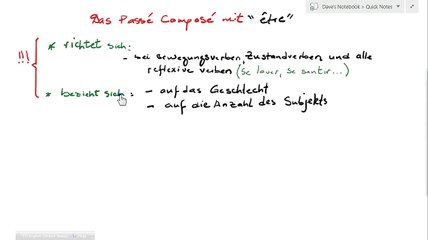 Dave's Notebook > Quick Notes
Das Passé Composé mit "être"
!!! * richtet sich:
- bei Bewegungsverben, Zustandverben und alle
reflexive verben (se laver, se sentir...)
* bezieht sich: - auf das Geschlecht
- auf die Anzahl des Subjekts